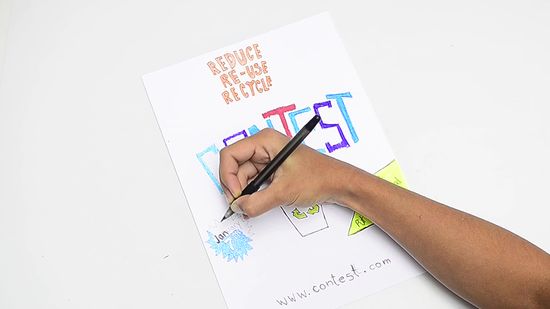 REDUCE
RE-USE
RECYCLE
CONTEST
Jan
www.contest.com